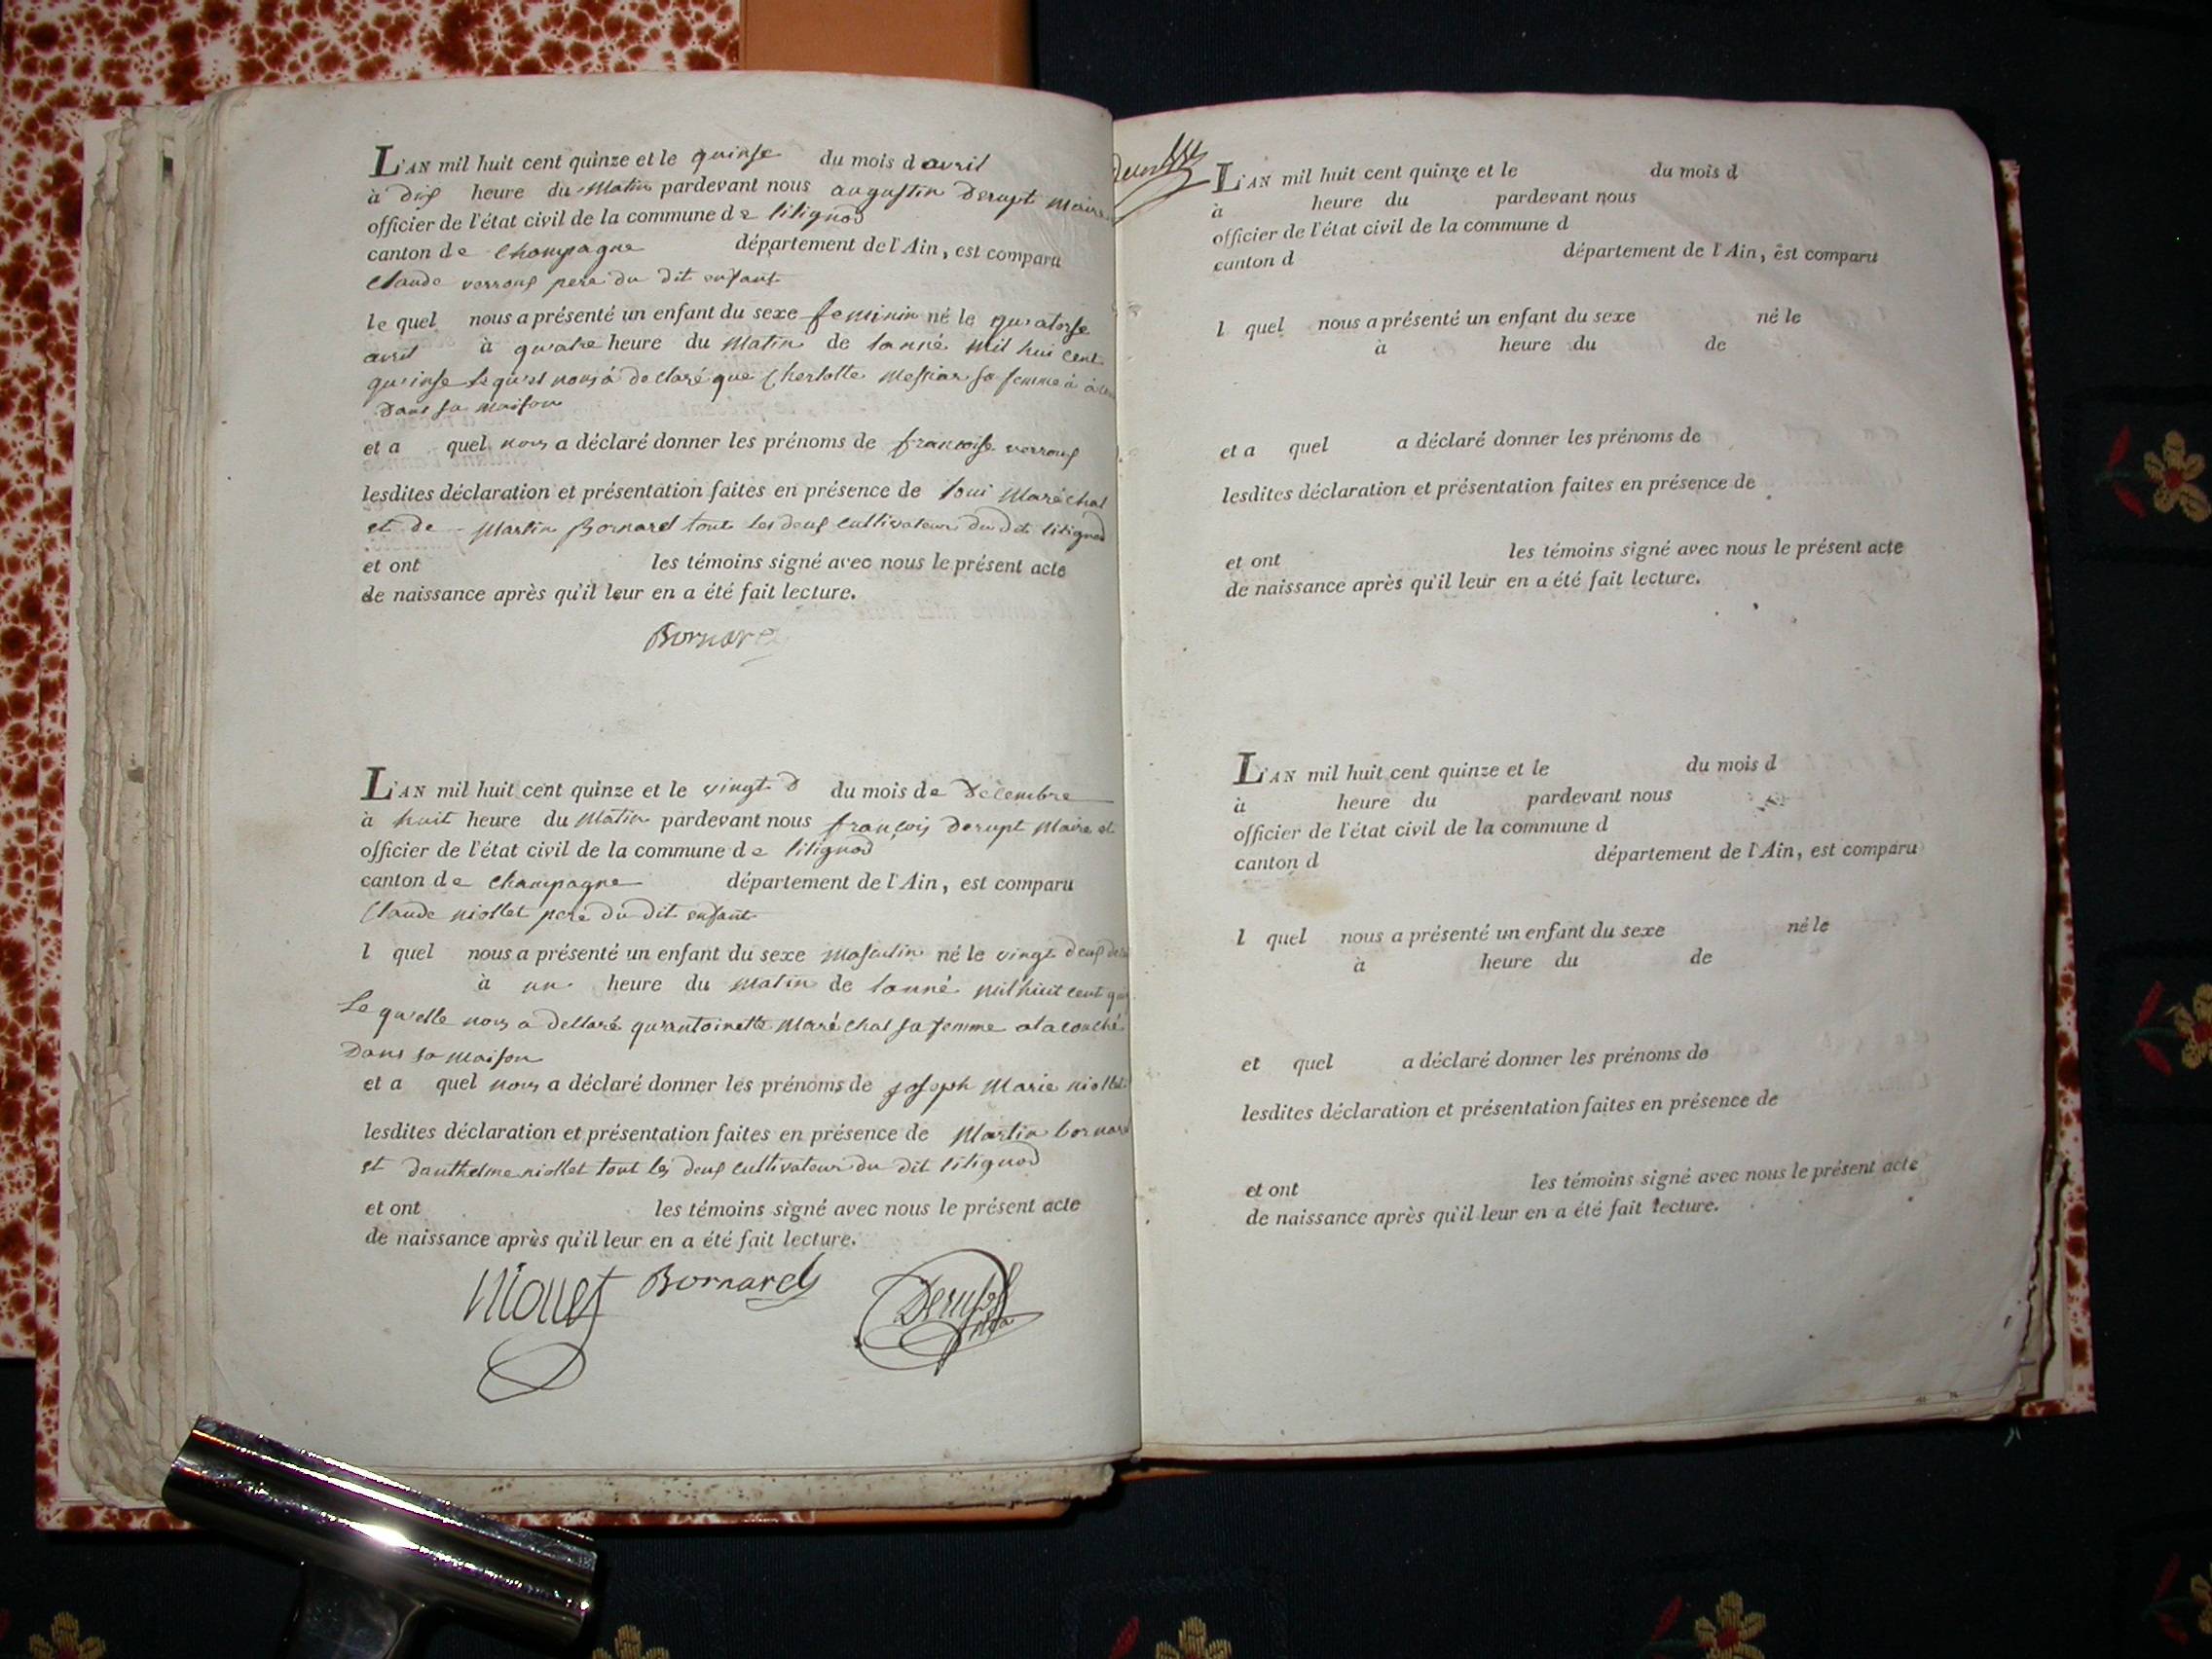 L'AN mil huit cent quinze et le quinse du mois d avril
à dix heure du Matin pardevant nous augustin Derupt Maire
officier de l'état civil de la commune de lilignod
canton de Champagne département de l'Ain, est comparu
Claude verroux pere du dit enfant
le quel nous a présenté un enfant du sexe feminin né le quatorse
avril à quatre heure du Matin de lanné Mil hui cent
quinse le quel nous à declaré que Cherlotte Messiar sa femme à
Dans sa maison
et a quel nous a déclaré donner les prénoms de francoise verroux
lesdites déclaration et présentation faites en présence de loui Maréchal
et de Martin Bornard tout les deux cultivateur du dit lilignod
et ont les témoins signé avec nous le présent acte
de naissance après qu'il leur en a été fait lecture.
Bornard
L'AN mil huit cent quinze et le vingt d du mois de Décembre
à huit heure du Matin pardevant nous françois Derupt Maire et
officier de l'état civil de la commune de lilignod
canton de Champagne département de l'Ain, est comparu
Claude niollet pere du dit enfant
l quel nous a présenté un enfant du sexe Masculin né le vingt deux
à un heure du Matin de lanné mil huit cent
Le quelle nous a dellaré quantoinette Maréchal sa femme ala couché
Dans sa maison
et a quel nous a déclaré donner les prénoms de joseph Marie niollet
lesdites déclaration et présentation faites en présence de Martin bornard
et danthelme niollet tout les deux cultivateur du dit lilignod
et ont les témoins signé avec nous le présent acte
de naissance après qu'il leur en a été fait lecture.
Niollet Bornard Derupt
L'AN mil huit cent quinze et le du mois d
à heure du pardevant nous
officier de l'état civil de la commune d
canton d département de l'Ain, est comparu
l quel nous a présenté un enfant du sexe né le
à heure du de
et a quel a déclaré donner les prénoms de
lesdites déclaration et présentation faites en présence de
et ont les témoins signé avec nous le présent acte
de naissance après qu'il leur en a été fait lecture.
L'AN mil huit cent quinze et le du mois d
à heure du pardevant nous
officier de l'état civil de la commune d
canton d département de l'Ain, est comparu
l quel nous a présenté un enfant du sexe né le
à heure du de
et quel a déclaré donner les prénoms de
lesdites déclaration et présentation faites en présence de
et ont les témoins signé avec nous le présent acte
de naissance après qu'il leur en a été fait lecture.